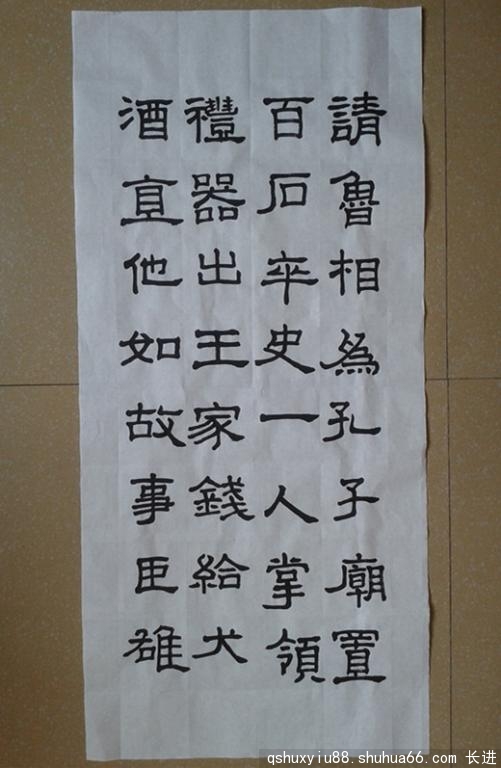 請魯相為孔子廟置
百石卒史一人掌領
禮器出王家錢給犬
酒直他如故事臣雄
qshuxyiu88.shuhua66.com 长进